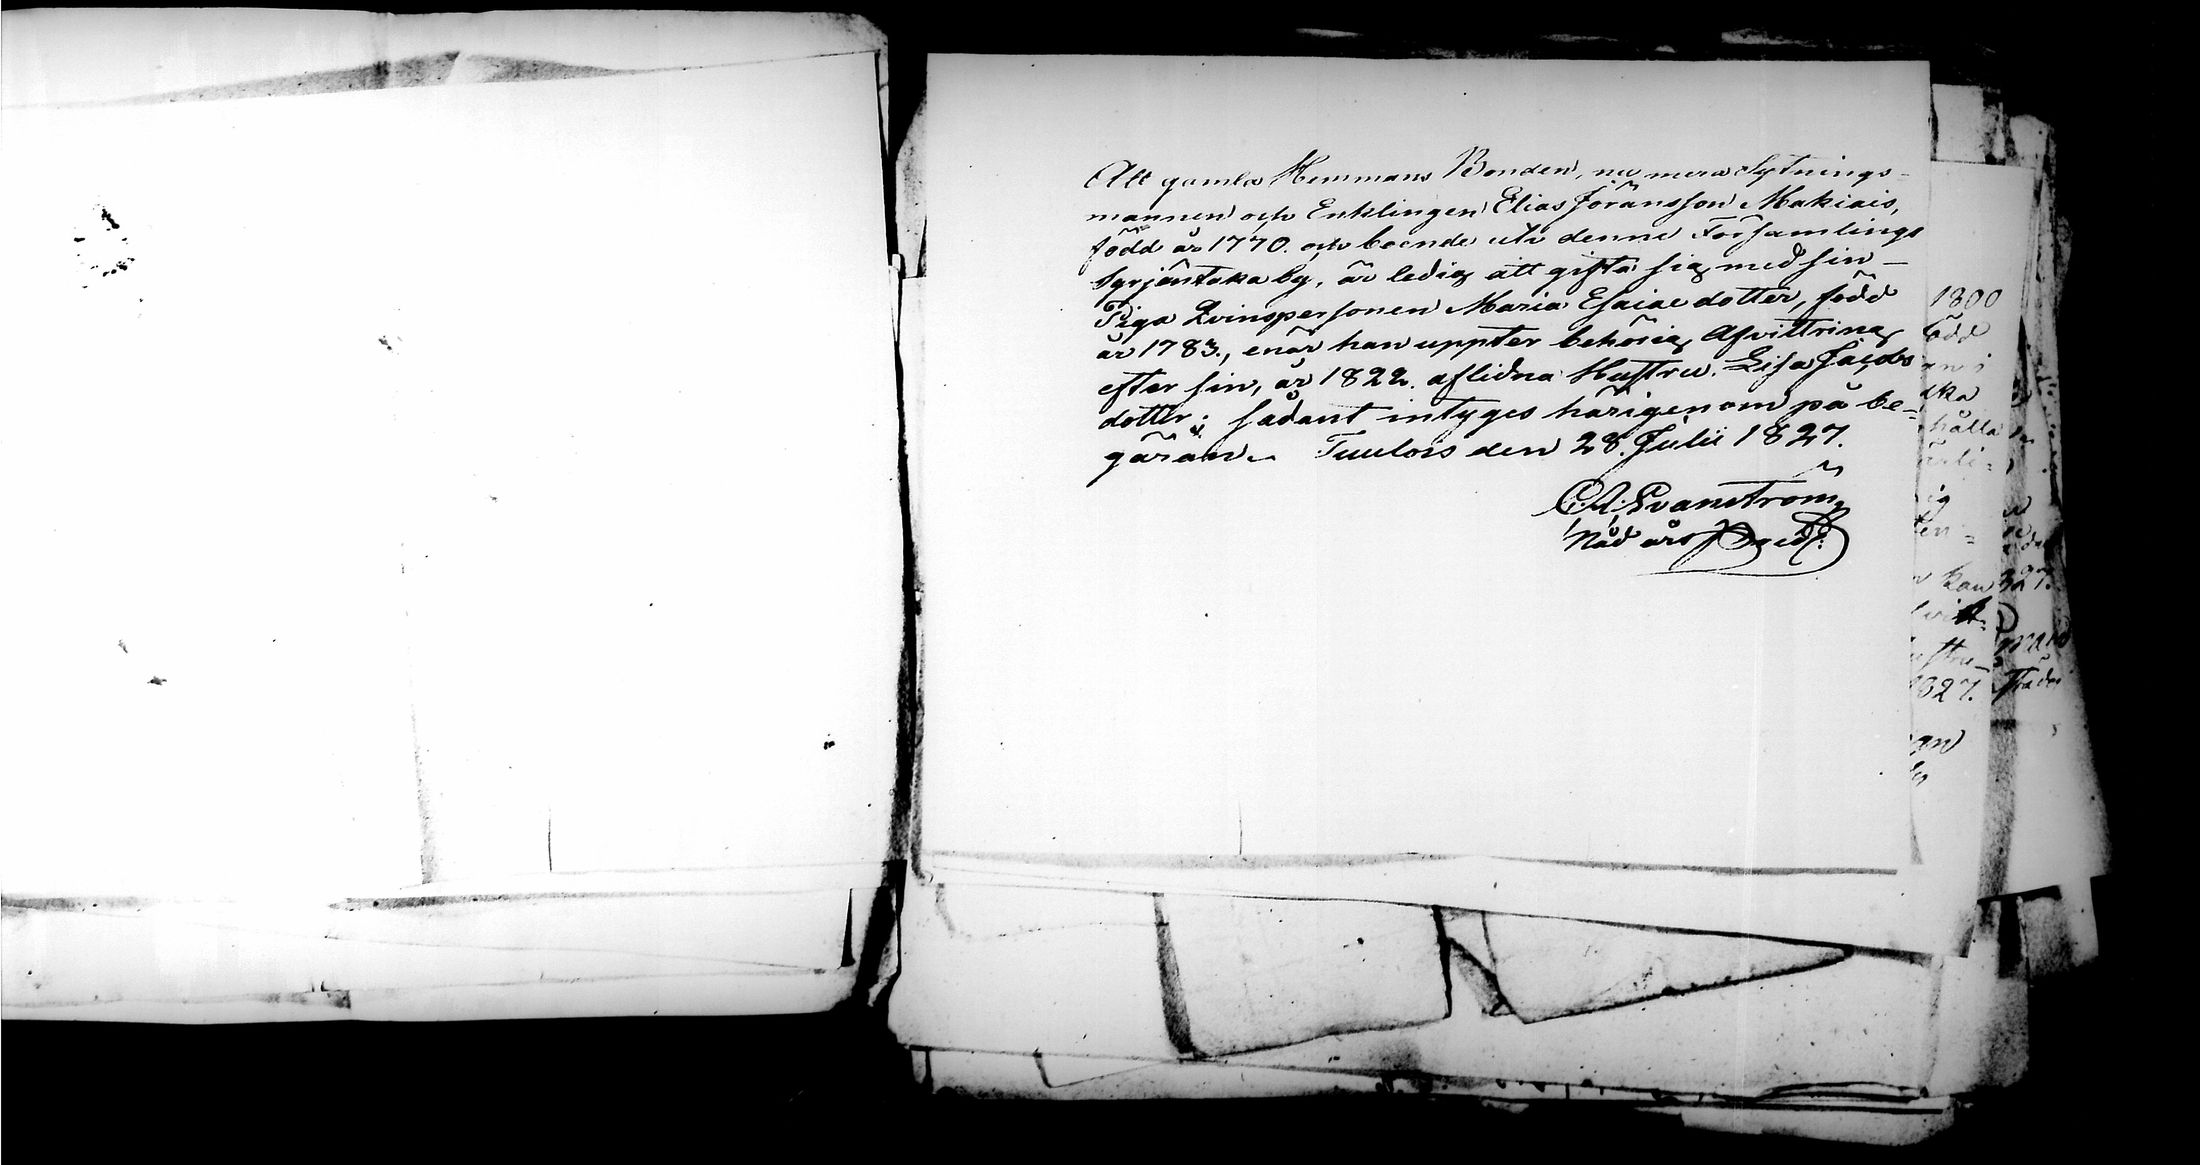 Att gamla Hemmans Bonden, nu mera Sytnings-
mannen och Enklingen Elias Jöransson Makiais,
född år 1770. och boende uti denne Församlings
Syrjäntaka by, är ledig att gifta sig med sin
Piga Qvinspersonen Maria Esaiae dotter, född
år 1783., enär han uppter behörig Afvittring
efter sin, år 1822. aflidna Hustru. Lisa Jacobs
dotter; sådant intyges härigenom på be-
gäran. Tuulois den 28. Julii 1827.
C. A. Svanström
Nåd års Pred:
1800
född
dka
hålla
ärli-
kan
1827.